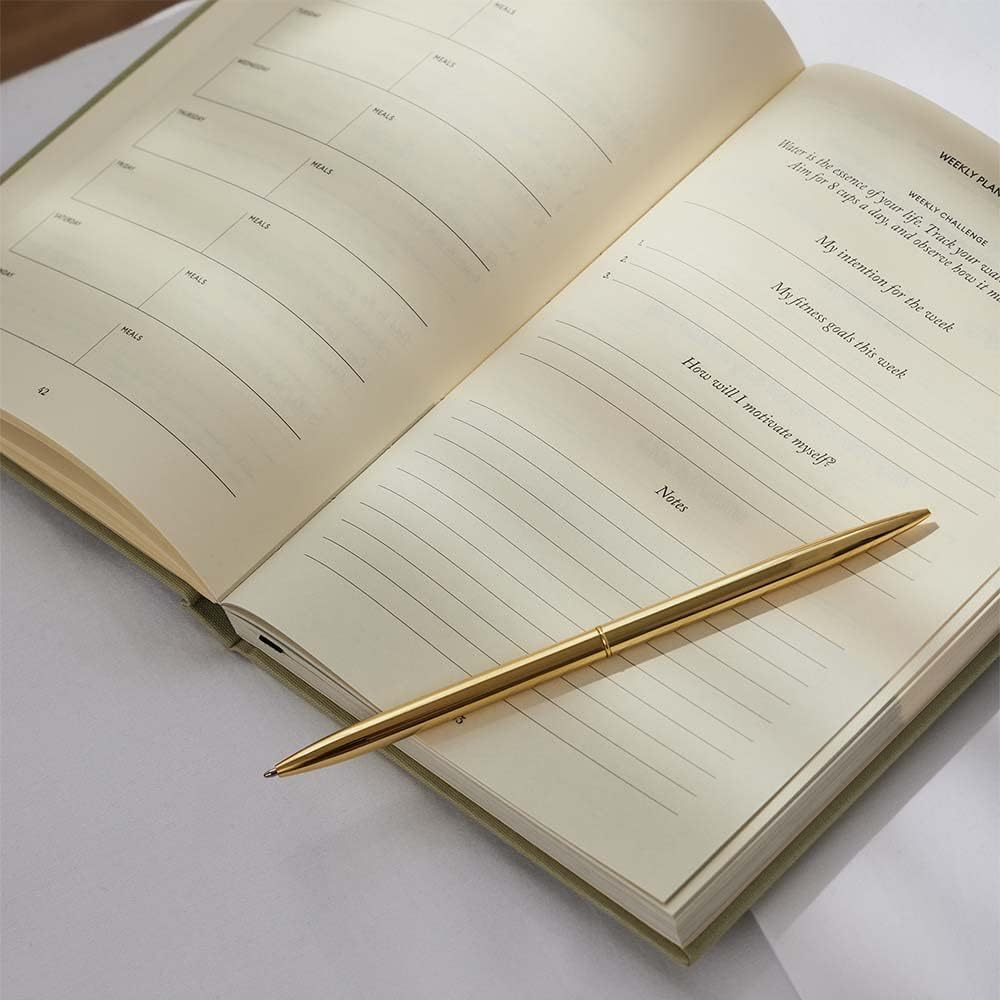 MEALS
TUESDAY MEALS
WEDNESDAY MEALS
THURSDAY MEALS
FRIDAY MEALS
SATURDAY MEALS
NDAY MEALS
42
WEEKLY PLAN
WEEKLY CHALLENGE
Water is the essence of your life. Track your wat
Aim for 8 cups a day, and observe how it m
My intention for the week
My fitness goals this week
1.
2.
3.
How will I motivate myself?
Notes